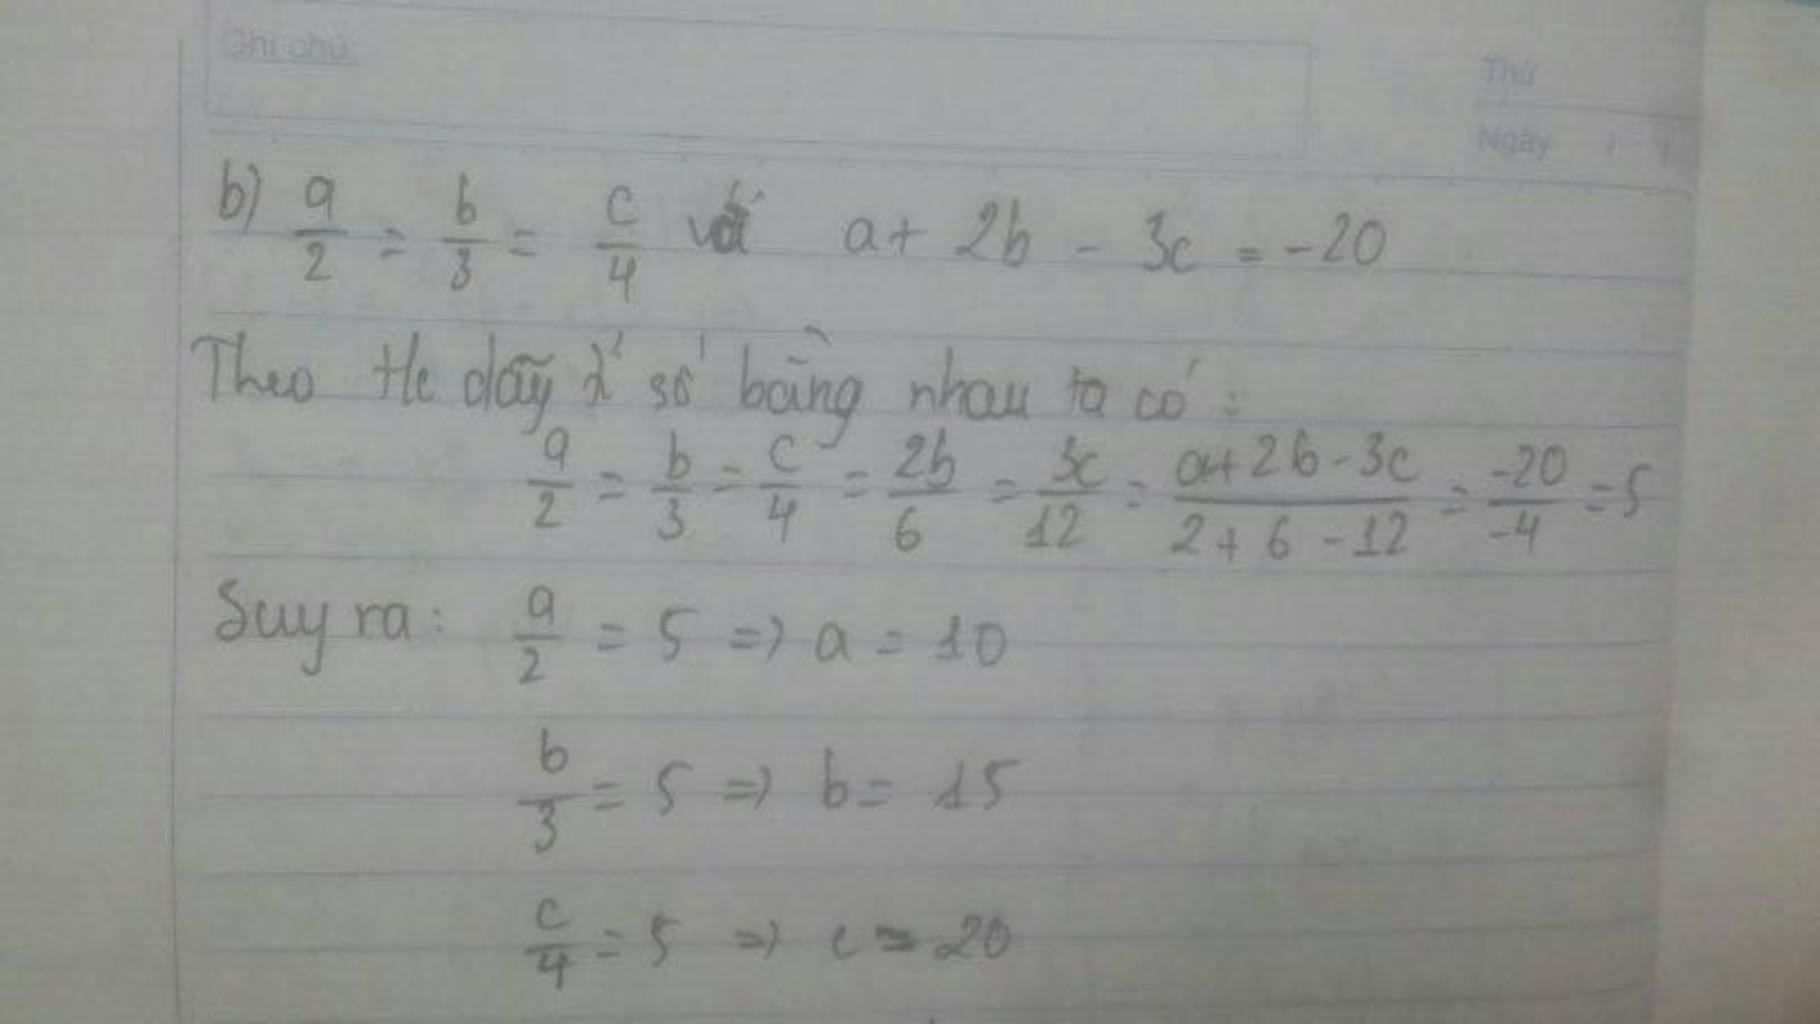 Ghi chú:
Thứ
Ngày / /
b) a/2 = b/3 = c/4 với a + 2b - 3c = -20
Theo t/c dãy tỉ số bằng nhau ta có:
a/2 = b/3 = c/4 = 2b/6 = 3c/12 = a+2b-3c/2+6-12 = -20/-4 = 5
Suy ra: a/2 = 5 => a = 10
b/3 = 5 => b = 15
c/4 = 5 => c = 20